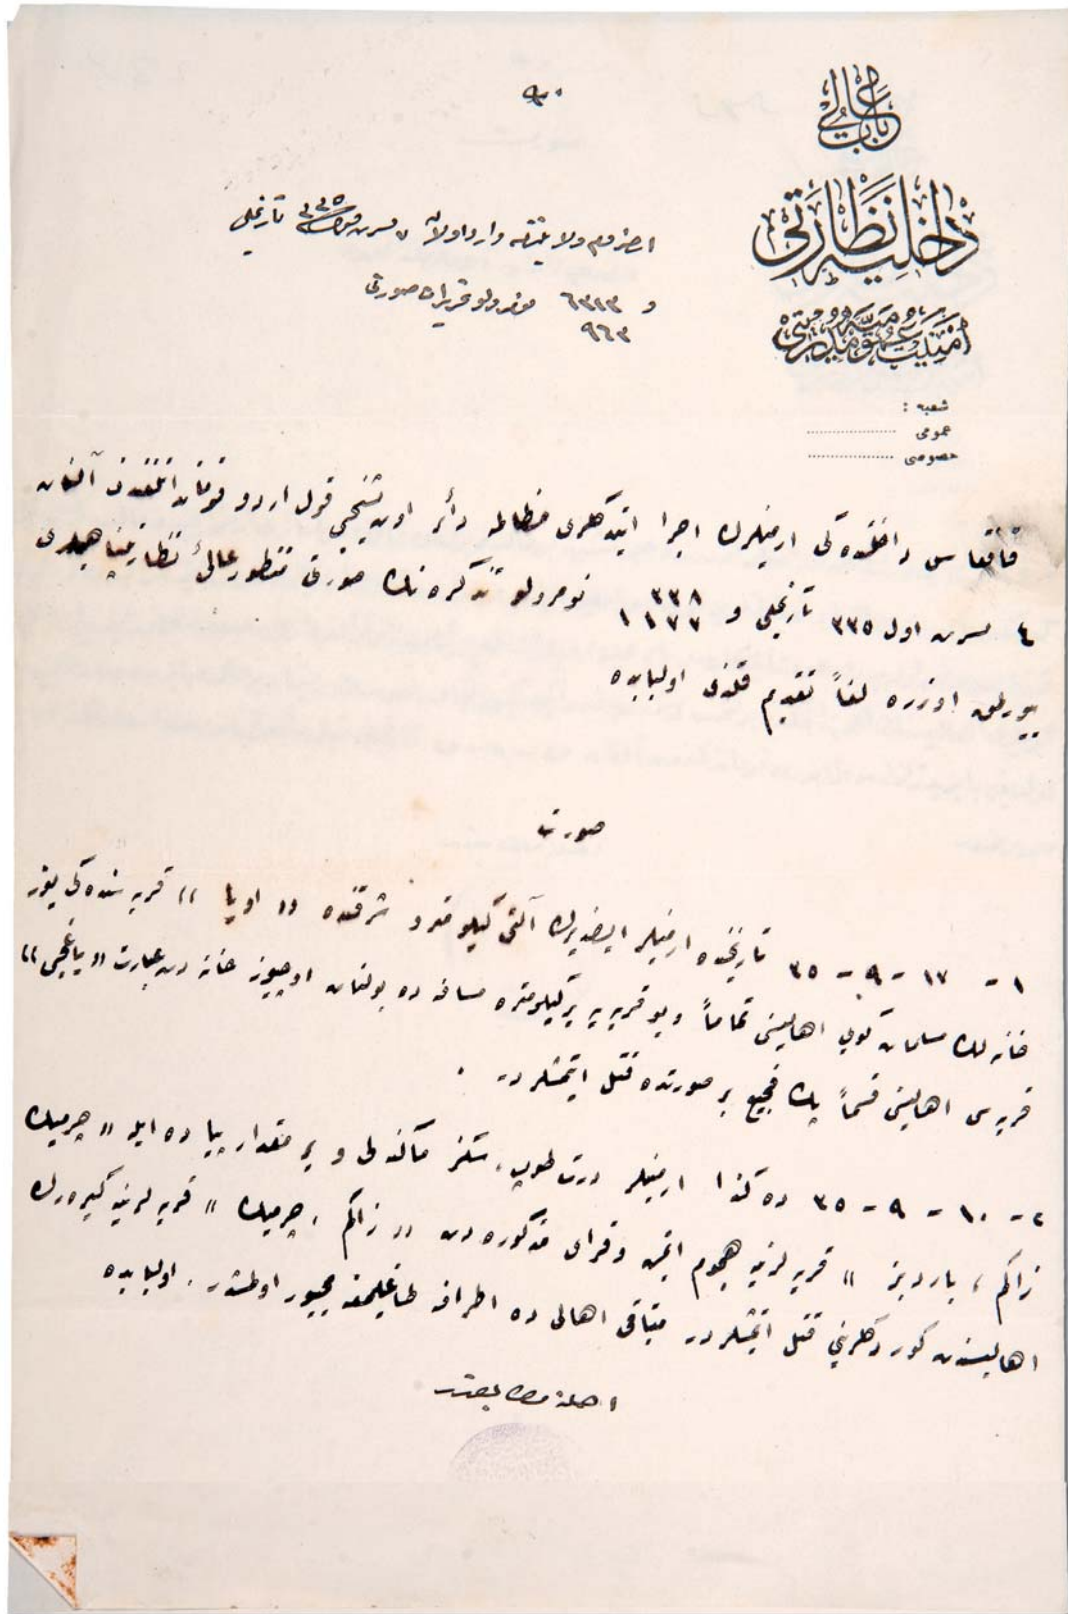 باب عالی
داخلیه نظارتی
امنیت عمومیه مدیریتی
شعبه :
عمومی
خصوصی
ارضروم ولایتندن وارد اولان ٣٣٥ تاریخلی
و ٦٣٢٣ نومرولو تحریرات صورتی
٩٦٣
قافقاس داخلنده کی ارمنیلرك اجرا ایتدکلری مظالمه دائر اون بشنجی قول اردو قوماندانلغندن آلنان
٤ تشرین اول ٣٣٥ تاریخلی و ٣٣٨ نومرولو تذکره نك صورتی منظور عالیٔ نظارتپناهیلری
١١٣٣
بیورلمق اوزره لفاً تقدیم قلندی اولبابده
صورت
١ - ١٧ - ٩ - ٣٥ تاریخنده ارمنیلر ایغدیرك آلتی کیلومترو شرقنده « اوبا » قریه سنده کی یوز
خانه لك مسلمان کوی اهالیسنی تماماً و بو قریه یه بر کیلومتره مسافه ده بولنان اوچیوز خانه دن عبارت « یاغجی »
قریه سی اهالیسنی قسماً پك فجیع بر صورتده قتل ایتمشلردر .
٢ - ١٠ - ٩ - ٣٥ ده کذا ارمنیلر درت طوپ ، سکز ماکنه لی و بر مقدار پیاده ایله « چرمیك
زاکم ، باردیز » قریه لرینه هجوم ایتمش و قرای مذکوره دن « زاکم ، چرمیك » قریه لرینه کیره رك
اهالیسندن کوردکلرینی قتل ایتمشلردر متباقی اهالی ده اطرافه طاغیلمغه مجبور اولمشدر . اولبابده
اصلنه مطابقدر